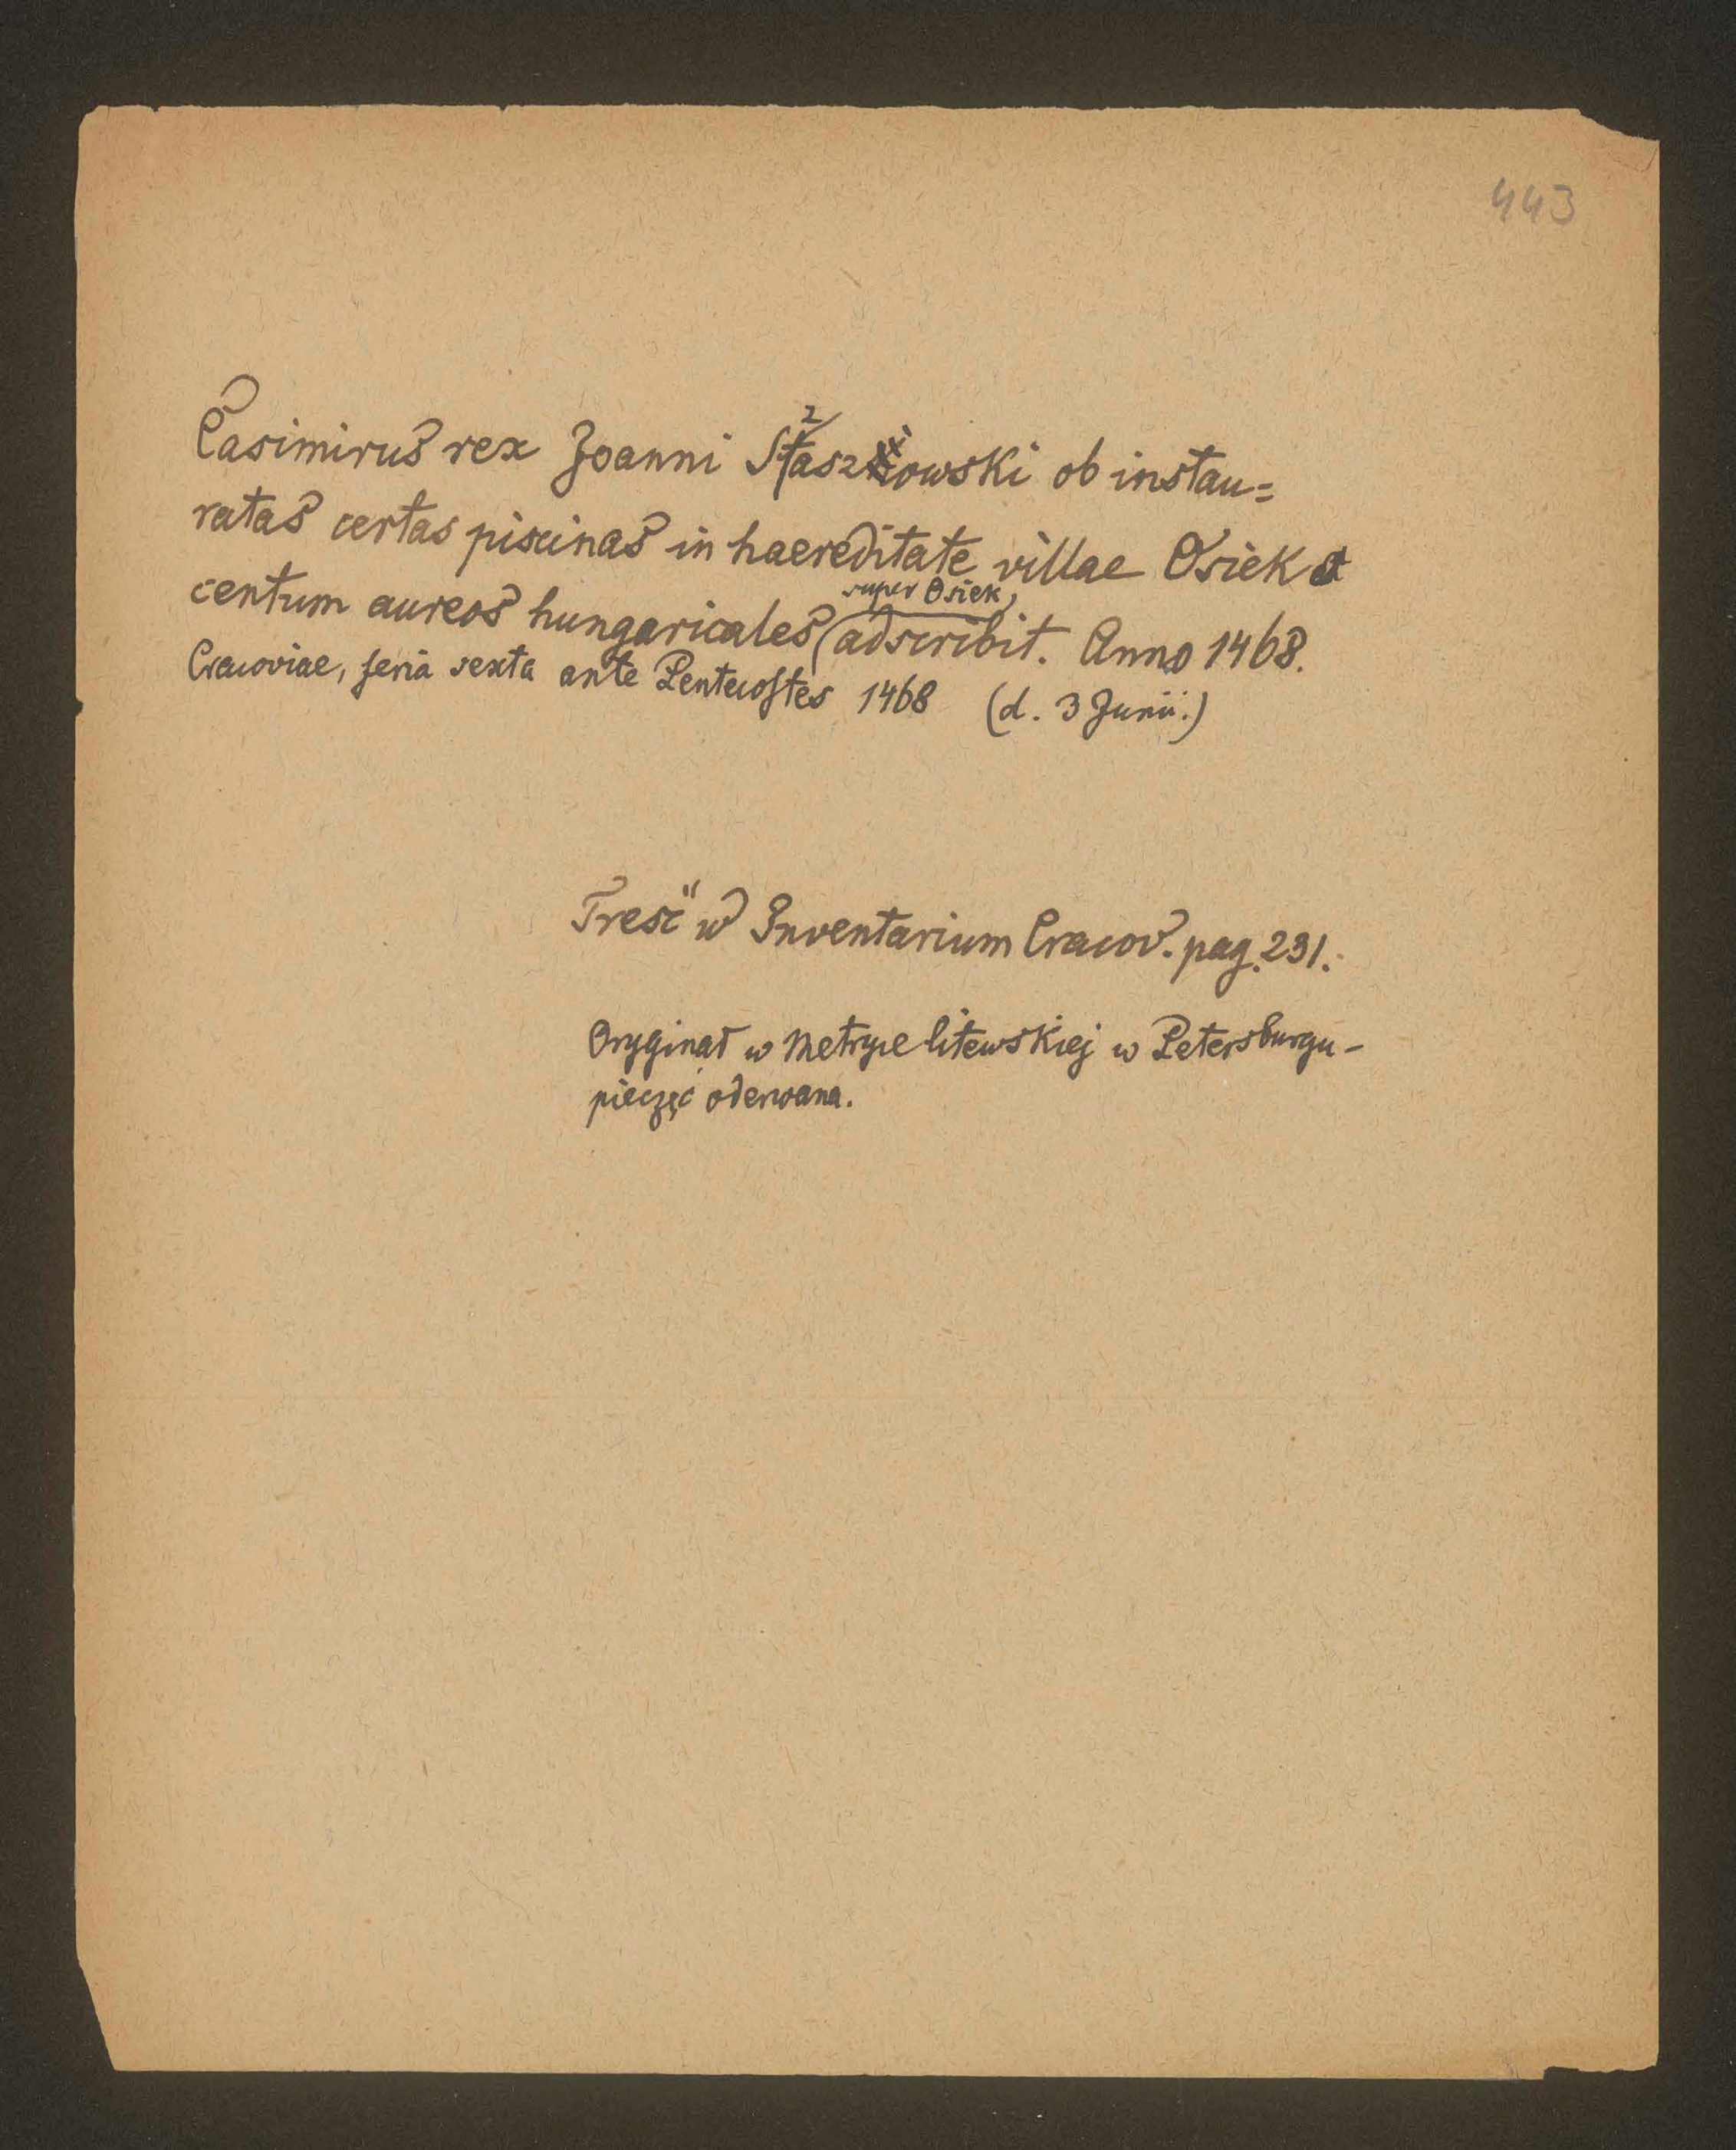 443
Casimirus rex Joanni Staszkowski ob instau=
ratas certas piscinas in haereditate villae Osiek
super Osiek
centum aureos hungaricales adscribit. Anno 1468.
Cracoviae, feria sexta ante Pentecostes 1468 (d. 3 Junii.)
Treść w Inventarium Cracov. pag. 231.
Oryginał w Metryce litewskiej w Petersburgu -
pieczęć oderwana.